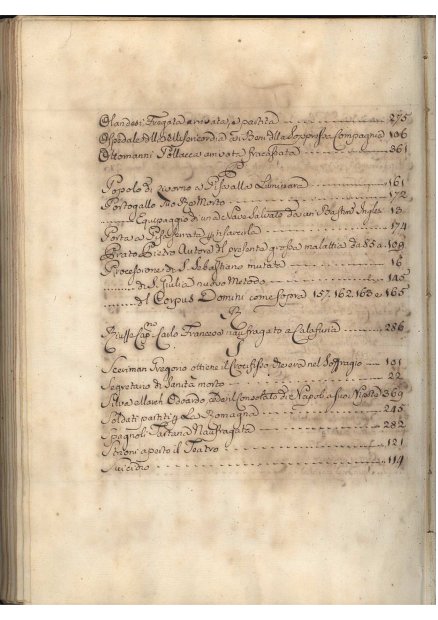 Olandesi Fregata arrivata, e partita 275
Ospedale della Misericordia à i Beni della soppressa Compagnia 106
Ottomanni Pollacca arrivata fracassata 361
P
Popolo di Livorno a Pisa alla Luminara 161
Portogallo Suo Re Morto 172
Equipaggio di una Nave Salvato da un Bastim.to Inglese 13
Porta a Pisa Serrata 174
Prato Pietro Autore del presente grossa malattia da 85 a 109
Processione di S. Sebastiano mutata 16
di S. Giulia nuovo Metodo 145
del Corpus Domini come sopra 157. 162. 163. e 165
R
Cap.no Carlo Francese naufragato a Calafuria 286
S
Gregorio ottiene il Crocifisso nel Suffragio 101
Segretario di Sanità morto 22
Edoardo cede il Consolato di Napoli a suo 369
Soldati partiti p. La Romagna 245
Spagnoli Tartana Naufragata 282
aperto il Teatro 121
Suicidio 114